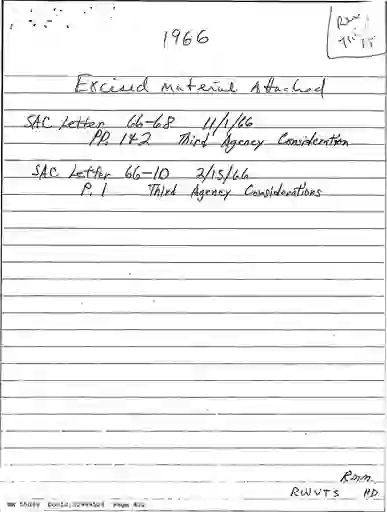 1966
Excised Material Attached
SAC Letter 66-68 11/1/66
PP. 1&2 Third Agency Consideration
SAC Letter 66-10 2/15/66
P. 1 Third Agency Considerations
Rmm
RWVTS HD